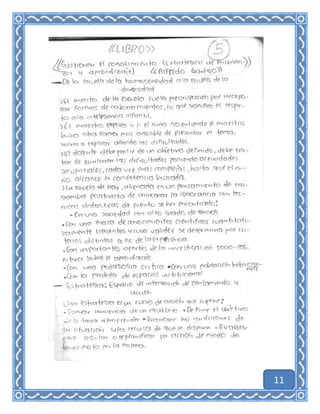 <<LIBRO>> 5
<<Gestionar el conocimiento (Estrategias de enseñan-
za y aprendizaje) <<Alfredo
—De la escuela de la homogeneidad a la escuela de la
diversidad
>El mérito de la escuela fue la preocupación por incorpo-
rar formas de razonamientos, lo que significó el respe-
to a la inteligencia infantil.
>El maestro explica y si el niño no entiende el maestro
busca otra forma mas accesible de presentar el tema,
vuelve a explicar allanando las dificultades.
>El docente debe partir de un objetivo definido, debe tra-
tar de las dificultades poniendo actividades
secuenciales, cada vez más complejas, hasta que el ni-
ño alcance la competencia buscada.
>La escuela de hoy, en un pensamiento de
de la ignorancia con téc-
nicas didácticas de pronto se ha encontrado:
•En una sociedad con alto grado de tensión
•Con una masa de conocimientos científicos cuantitati-
vamente y cuya validez se determina por cri-
terios distintos a los de la
•Con importantes aportes de la investigación socio-cog-
nitiva sobre el aprendizaje.
•Con una pedagogía crítica •Con una población heterogé-
nea
•Con la perdida de espacio institucional
— Estrategia: Espacio de intersección de pensamiento y
acción
Una estrategia es un curso de acción que supone:
•Tomar conciencia de un problema •Definir el objetivo
de la tarea a emprender •Reconocer las condiciones de
la situación y los recursos de que se dispone •Evaluar
para y replanificar la acción de modo de
en la misma.
11